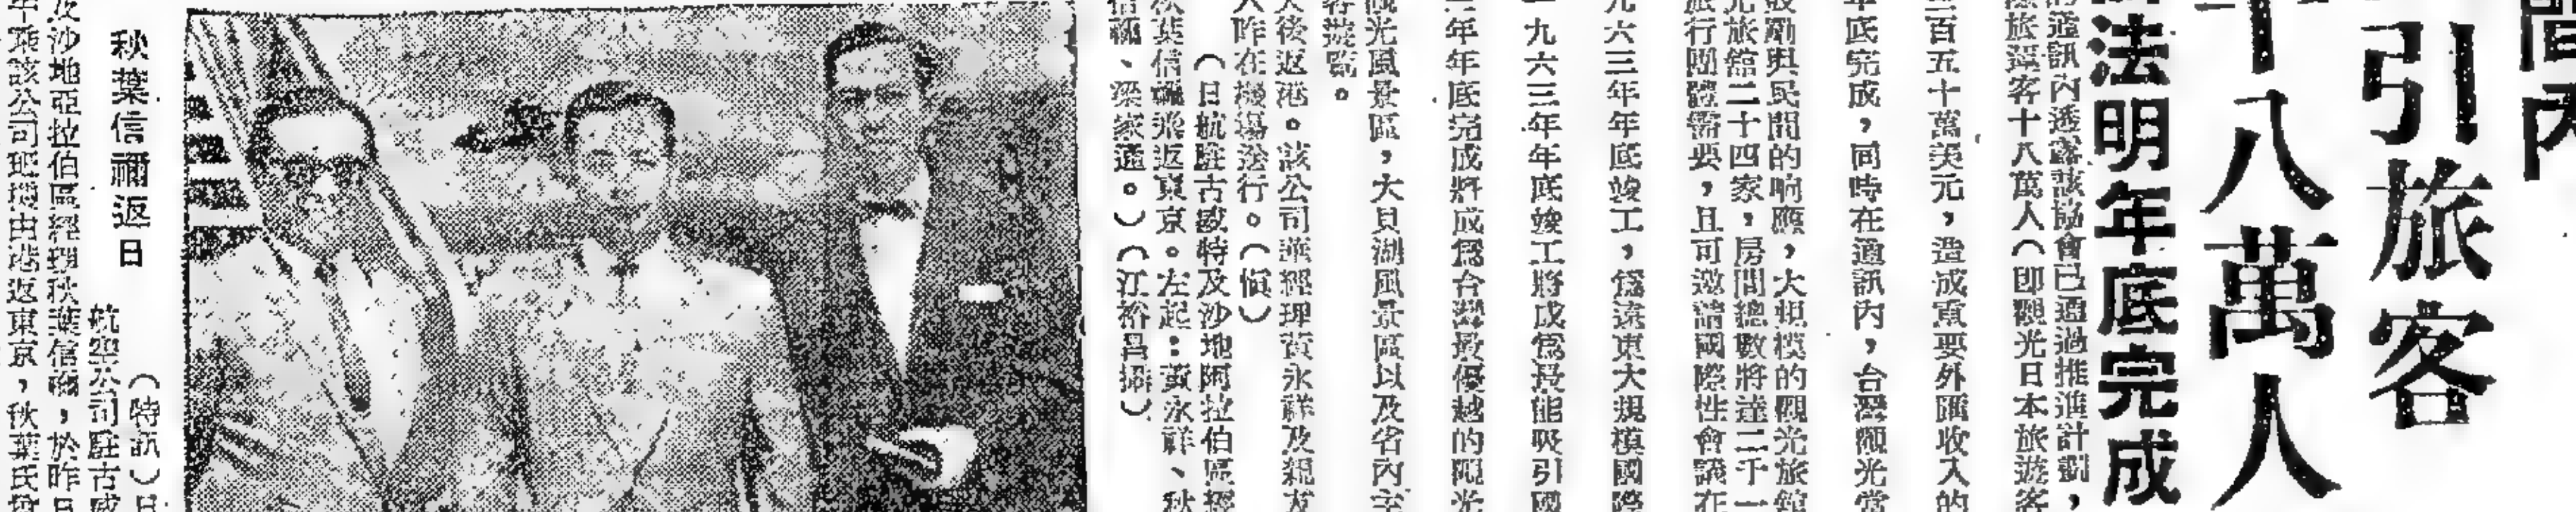 間內
引旅客
十八萬人
法明年底完成
的通訊內透露該協會已通過推進計劃，
際旅遊客十八萬人（即觀光日本旅遊客
百五十萬美元，造成重要外匯收入的
年底完成，同時在通訊內，台灣觀光當
鼓勵與民間的响應，大規模的觀光旅館
光旅館二十四家，房間總數將達二千一
旅行團體需要，且可邀請國際性會議在
九六三年年底竣工，爲遠東大規模國際
一九六三年年底竣工將成爲最能吸引國
年年底完成將成爲台灣最優越的觀光
觀光風景區，大貝湖風景區以及省內主
天後返港。該公司華經理黃永祥及親友
昨在機場送行。（愼）
（日航駐古歐特及沙地阿拉伯區經
秋葉信禰飛返東京。左起：黃永祥、秋
信禰、梁家通。）（江裕昌攝）
秋葉信禰返日
（特訊）日
航空公司駐古歐
及沙地亞拉伯區經理秋葉信禰，於昨日
午乘該公司班機由港返東京，秋葉氏